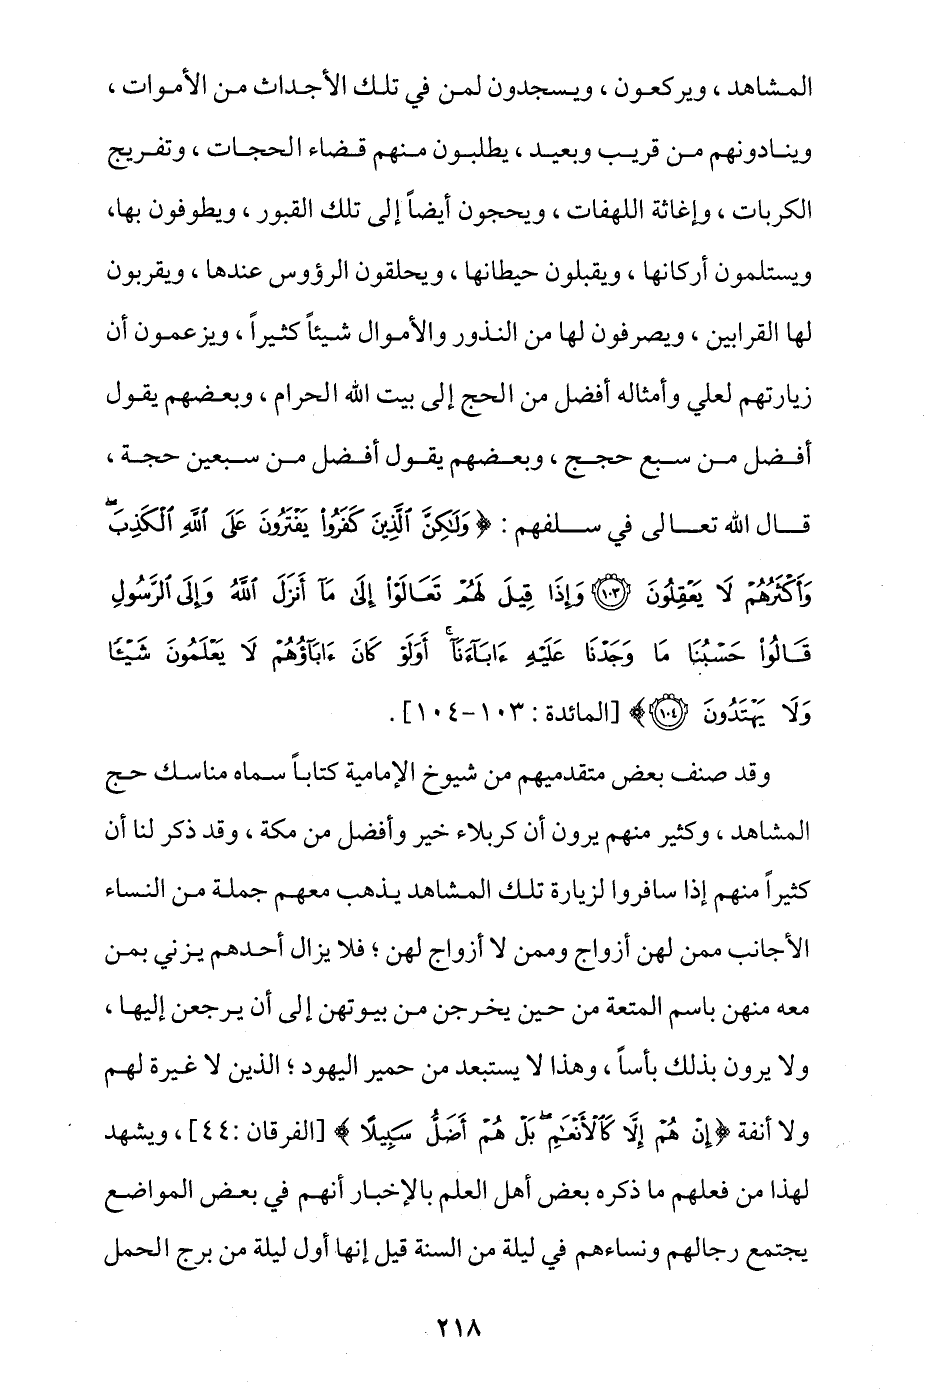 المشاهد ، ويركعون ، ويسجدون لمن في تلك الأجداث من الأموات ،
وينادونهم من قريب وبعيد ، يطلبون منهم قضاء الحجات ، وتفريج
الكربات ، وإغاثة اللهفات ، ويحجون أيضاً إلى تلك القبور ، ويطوفون بها،
ويستلمون أركانها ، ويقبلون حيطانها ، ويحلقون الرؤوس عندها ، ويقربون
لها القرابين ، ويصرفون لها من النذور والأموال شيئاً كثيراً ، ويزعمون أن
زيارتهم لعلي وأمثاله أفضل من الحج إلى بيت الله الحرام ، وبعضهم يقول
أفضل من سبع حجج ، وبعضهم يقول أفضل من سبعين حجة ،
قال الله تعالى في سلفهم : ﴿ وَلَٰكِنَّ ٱلَّذِينَ كَفَرُوا۟ يَفْتَرُونَ عَلَى ٱللَّهِ ٱلْكَذِبَ ۖ
وَأَكْثَرُهُمْ لَا يَعْقِلُونَ ۝١٠٣ وَإِذَا قِيلَ لَهُمْ تَعَالَوْا۟ إِلَىٰ مَآ أَنزَلَ ٱللَّهُ وَإِلَى ٱلرَّسُولِ
قَالُوا۟ حَسْبُنَا مَا وَجَدْنَا عَلَيْهِ ءَابَآءَنَآ ۚ أَوَلَوْ كَانَ ءَابَآؤُهُمْ لَا يَعْلَمُونَ شَيْـًٔا
وَلَا يَهْتَدُونَ ۝١٠٤ ﴾ [المائدة : ١٠٣-١٠٤] .
وقد صنف بعض متقدميهم من شيوخ الإمامية كتاباً سماه مناسك حج
المشاهد ، وكثير منهم يرون أن كربلاء خير وأفضل من مكة ، وقد ذكر لنا أن
كثيراً منهم إذا سافروا لزيارة تلك المشاهد يذهب معهم جملة من النساء
الأجانب ممن لهن أزواج وممن لا أزواج لهن ؛ فلا يزال أحدهم يزني بمن
معه منهن باسم المتعة من حين يخرجن من بيوتهن إلى أن يرجعن إليها ،
ولا يرون بذلك بأساً ، وهذا لا يستبعد من حمير اليهود ؛ الذين لا غيرة لهم
ولا أنفة ﴿ إِنْ هُمْ إِلَّا كَٱلْأَنْعَٰمِ ۖ بَلْ هُمْ أَضَلُّ سَبِيلًا ﴾ [الفرقان : ٤٤] ، ويشهد
لهذا من فعلهم ما ذكره بعض أهل العلم بالإخبار أنهم في بعض المواضع
يجتمع رجالهم ونساءهم في ليلة من السنة قيل إنها أول ليلة من برج الحمل
٢١٨